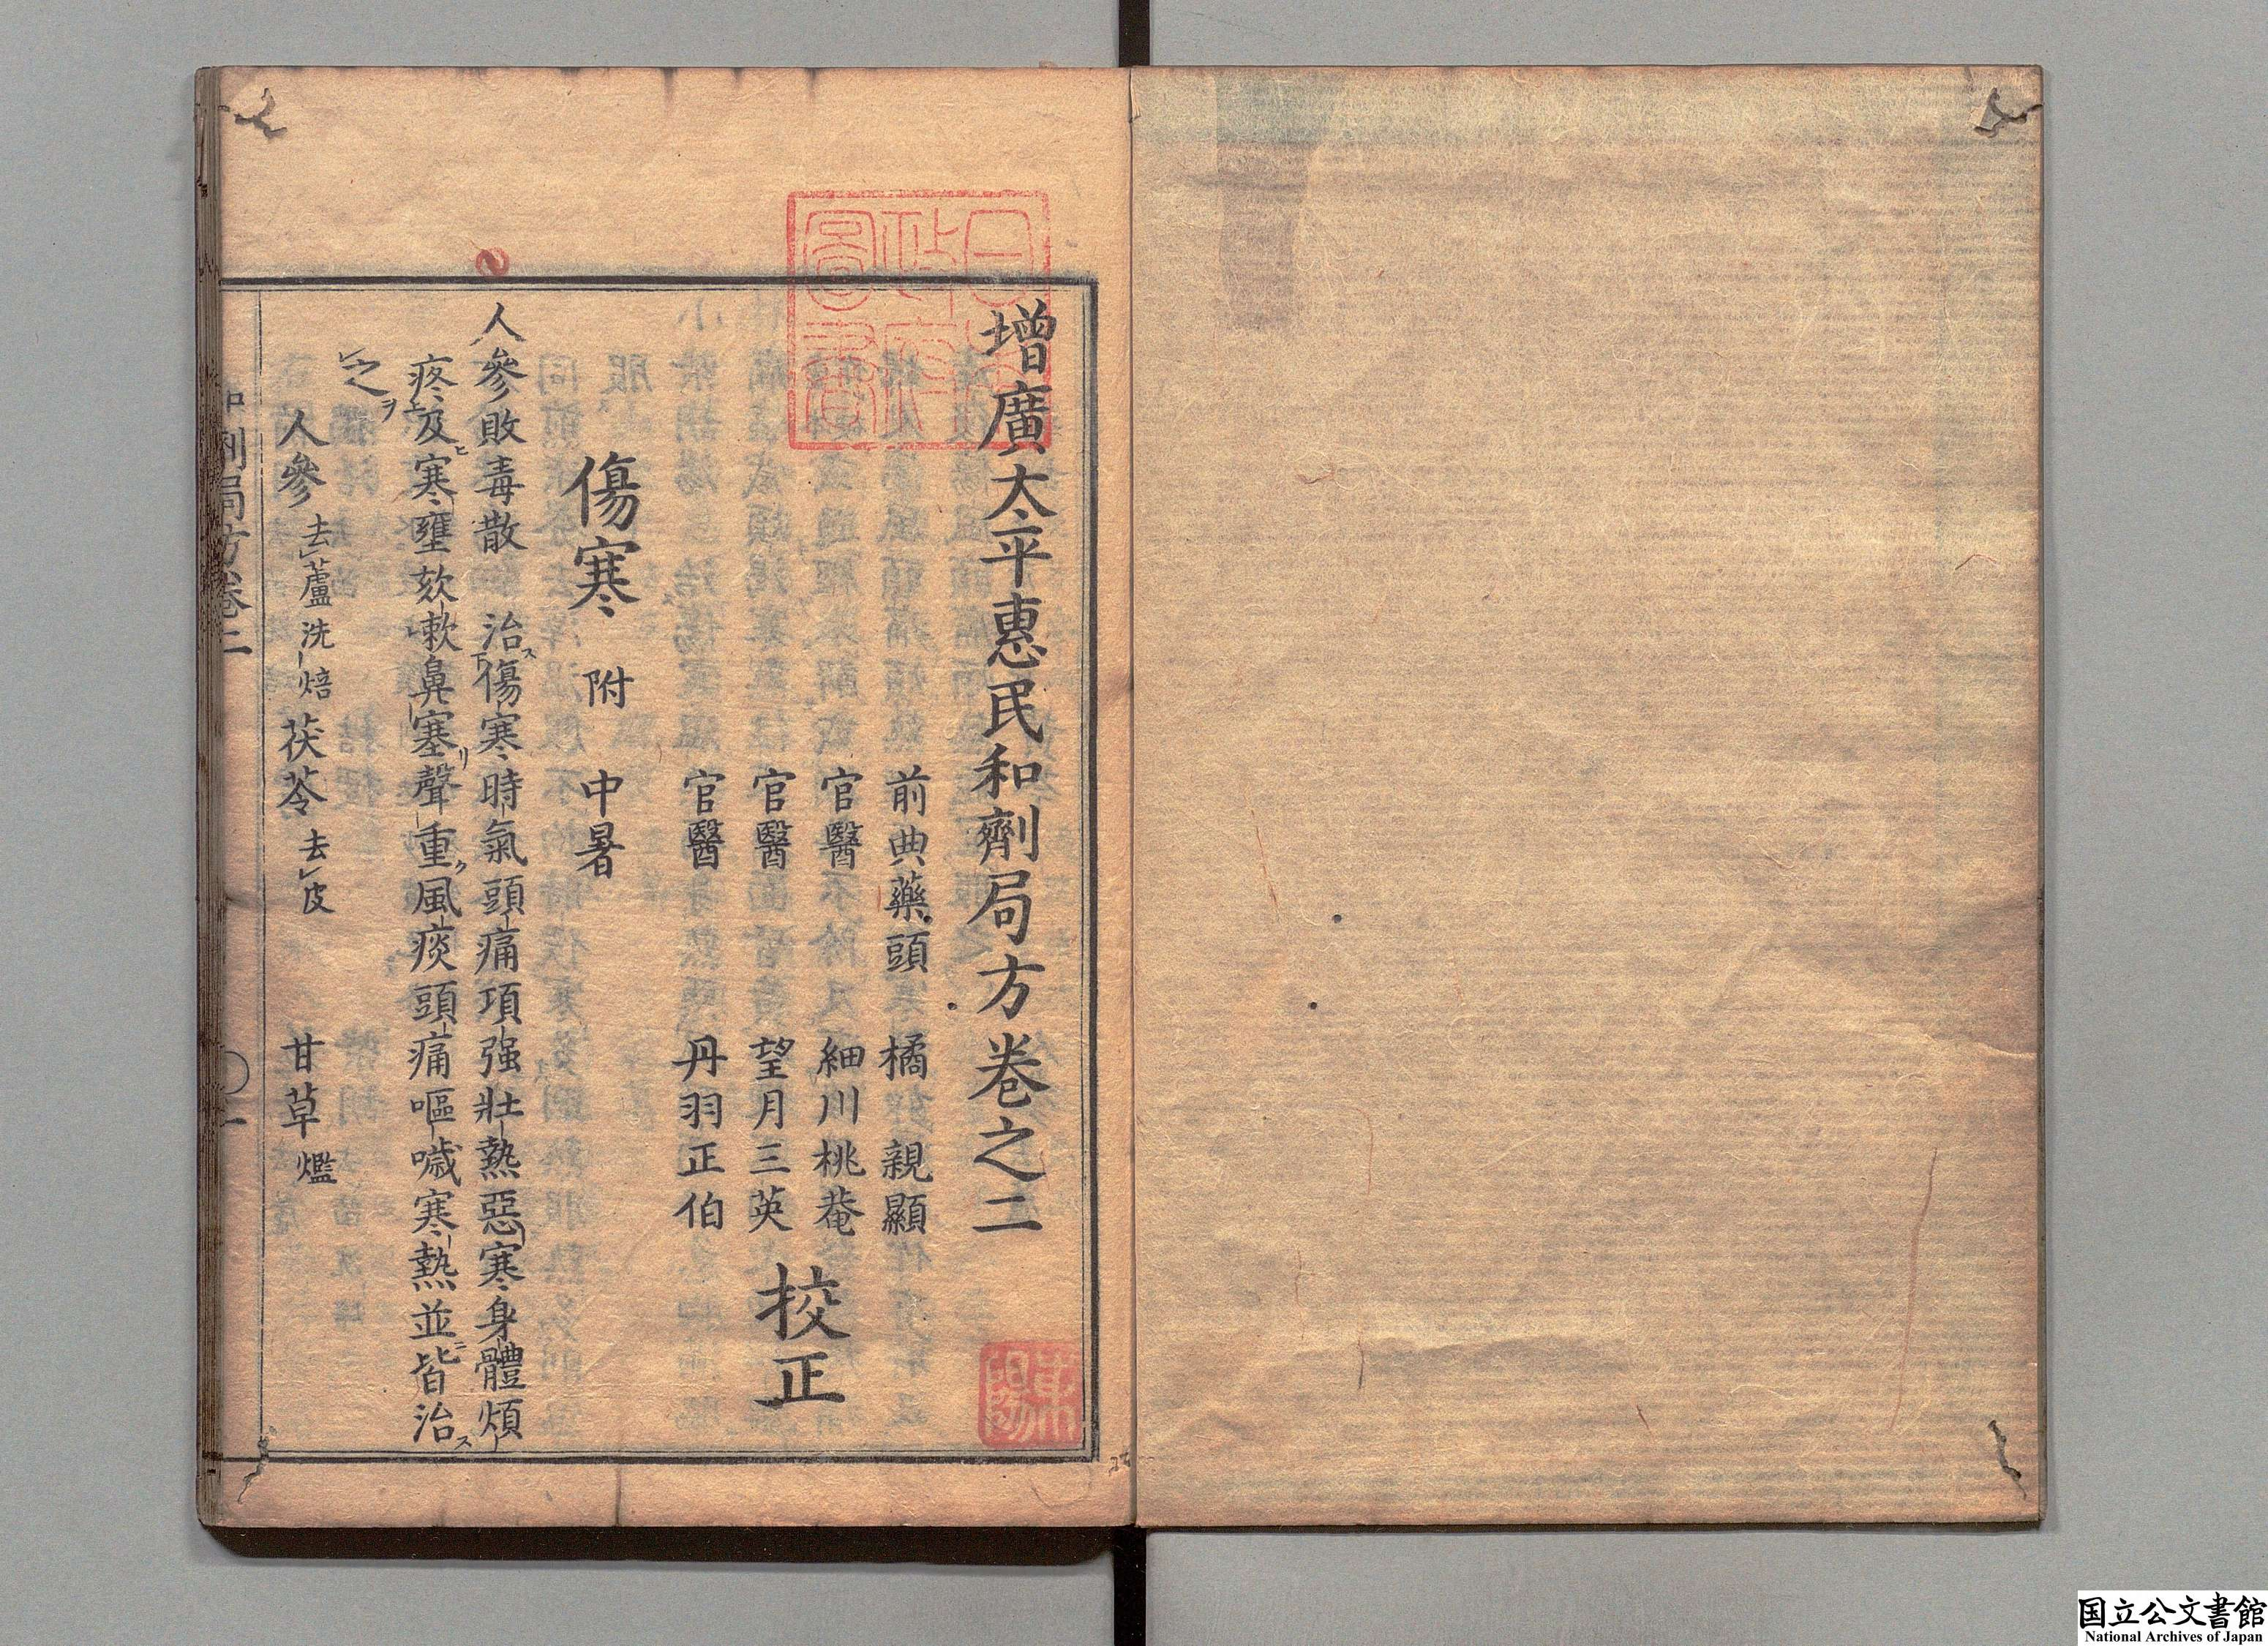 增廣太平惠民和劑局方卷之二
前典藥頭　橘　親顯
官醫　細川桃菴
官醫　望月三英
官醫　丹羽正伯
校正
傷寒　附　中暑
人參敗毒散　治ス傷寒時氣頭痛項强壯熱惡寒身體煩
疼及ヒ寒壅欬嗽鼻塞リ聲重ク風痰頭痛嘔噦寒熱並ニ皆治ス
之ヲ
人參 去蘆洗焙　茯苓 去皮　甘草 爁
和劑局方卷二　一
日本政府圖書
東陽
国立公文書館
National Archives of Japan